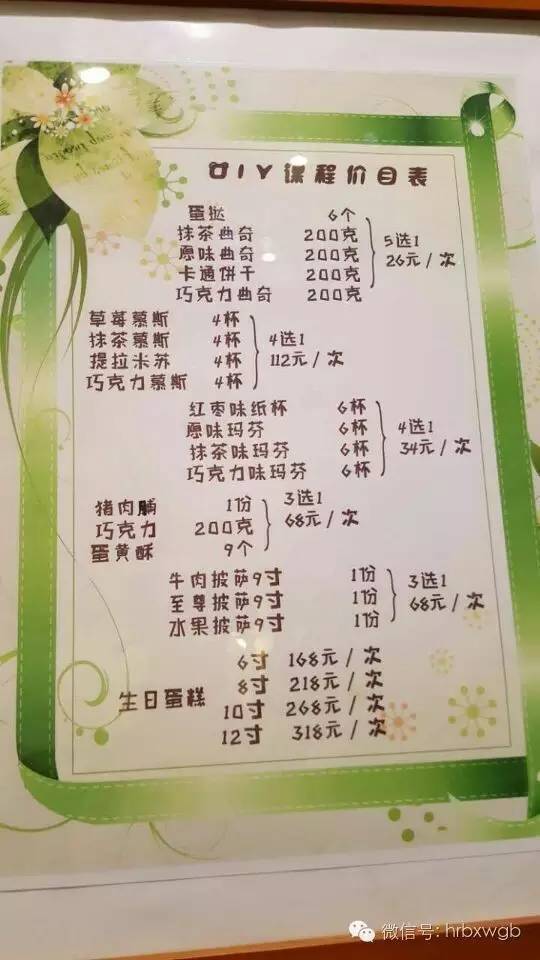 DIY课程价目表
蛋挞 6个
抹茶曲奇 200克
原味曲奇 200克
卡通饼干 200克
巧克力曲奇 200克
5选1
26元/次
草莓慕斯 4杯
抹茶慕斯 4杯
提拉米苏 4杯
巧克力慕斯 4杯
4选1
112元/次
红枣味纸杯 6杯
原味玛芬 6杯
抹茶味玛芬 6杯
巧克力味玛芬 6杯
4选1
34元/次
猪肉脯 1份
巧克力 200克
蛋黄酥 9个
3选1
68元/次
牛肉披萨9寸 1份
至尊披萨9寸 1份
水果披萨9寸 1份
3选1
68元/次
生日蛋糕
6寸 168元/次
8寸 218元/次
10寸 268元/次
12寸 318元/次
微信号: hrbxwgb